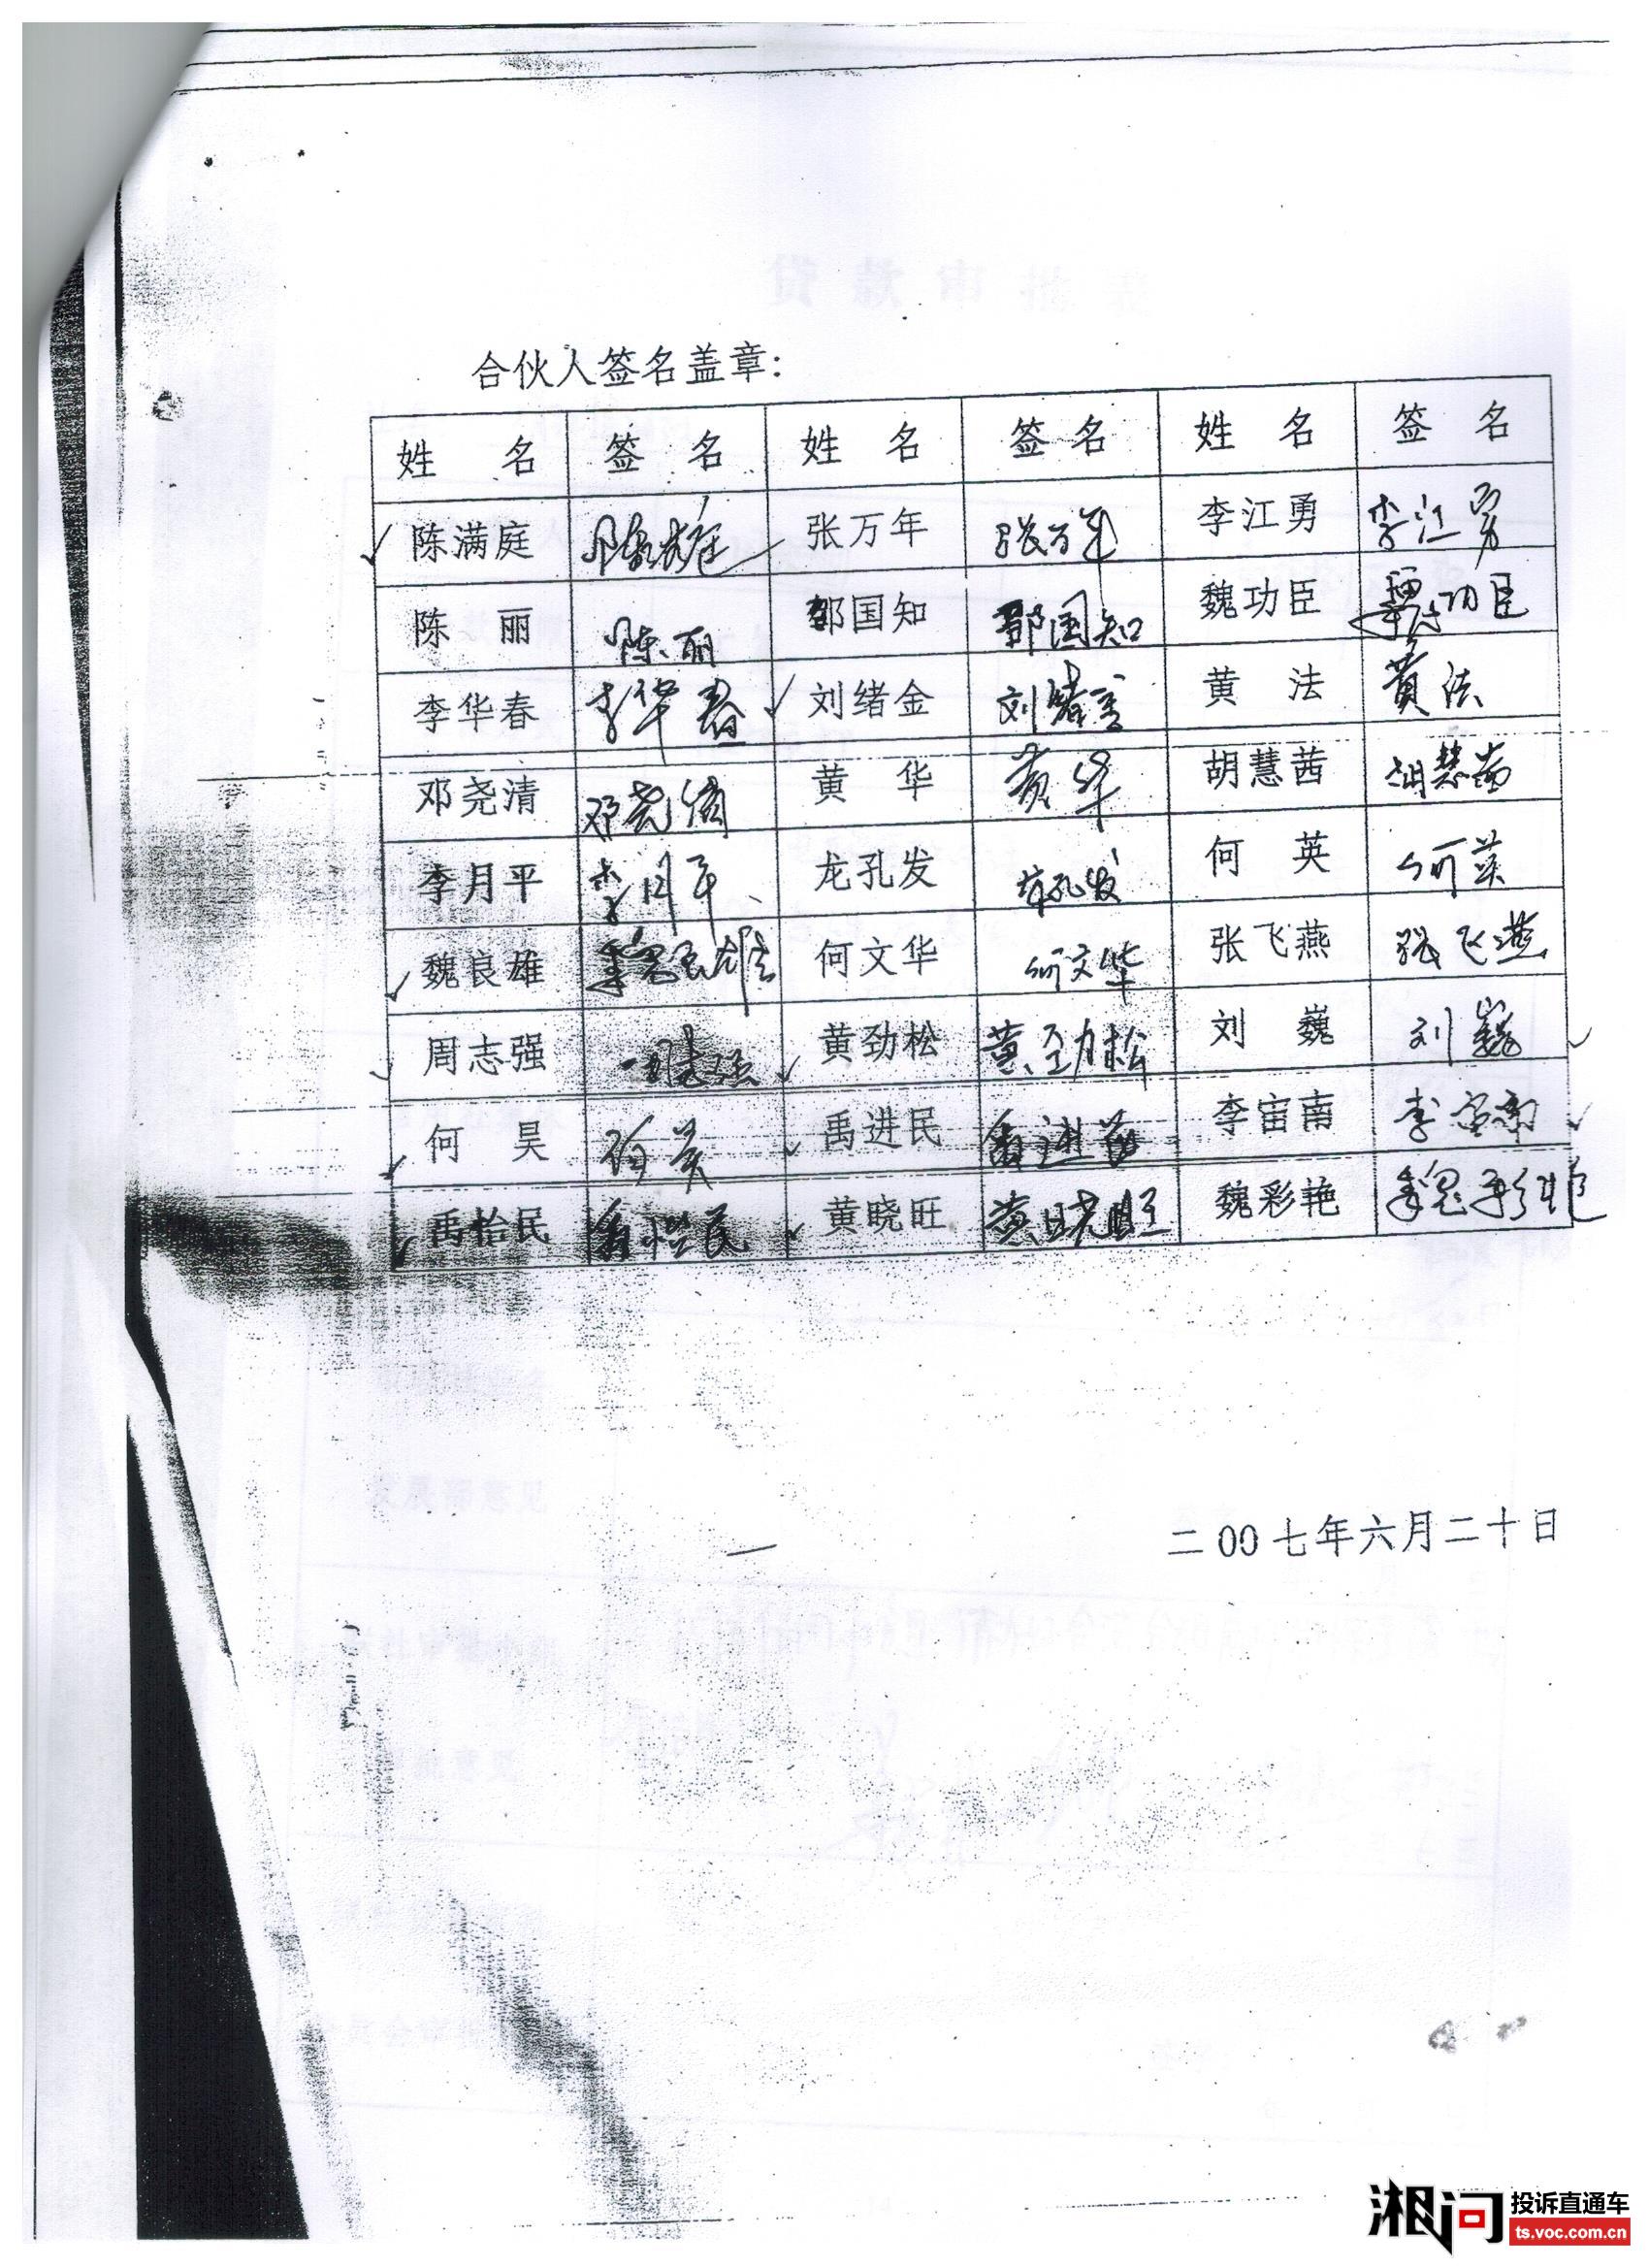 贷款审批表
合伙人签名盖章：
姓 名 签 名 姓 名 签 名 姓 名 签 名
陈满庭 张万年 张万年 李江勇 李江勇
陈 丽 陈丽 邹国知 邹国知 魏功臣 魏功臣
李华春 李华春 刘绪金 刘绪金 黄 法 黄法
邓尧清 邓尧清 黄 华 黄华 胡慧茜 胡慧茜
李月平 李月平 龙孔发 龙孔发 何 英 何英
魏良雄 魏良雄 何文华 何文华 张飞燕 张飞燕
周志强 周志强 黄劲松 黄劲松 刘 巍 刘巍
何 昊 何昊 禹进民 禹进民 李宙南 李宙南
禹怡民 禹怡民 黄晓旺 黄晓旺 魏彩艳 魏彩艳
二00七年六月二十日
湘问 投诉直通车
ts.voc.com.cn